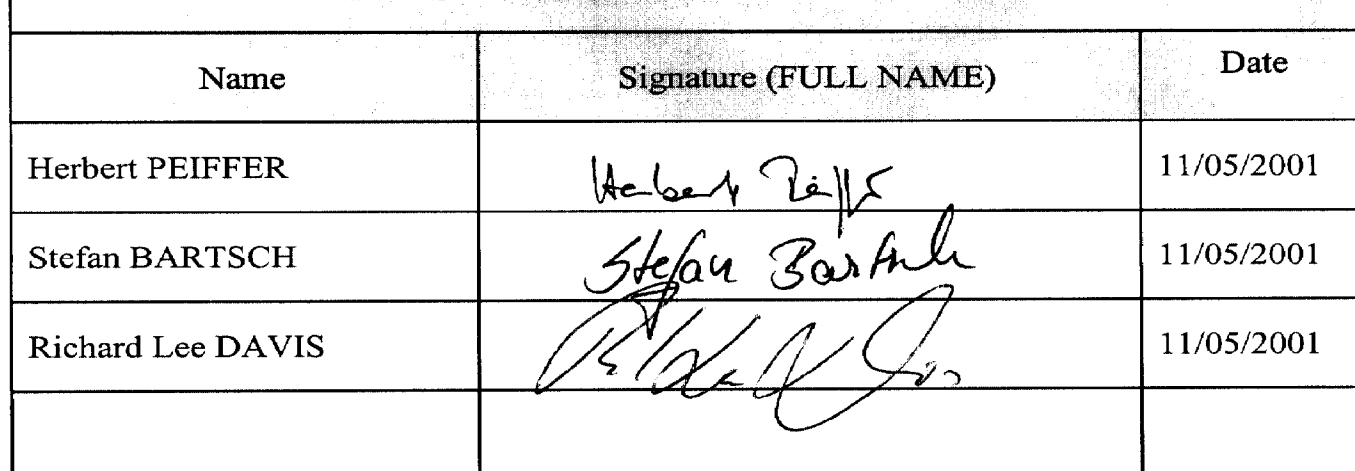 Name Signature (FULL NAME) Date
Herbert PEIFFER Herbert Peiffer 11/05/2001
Stefan BARTSCH Stefan Bartsch 11/05/2001
Richard Lee DAVIS 11/05/2001